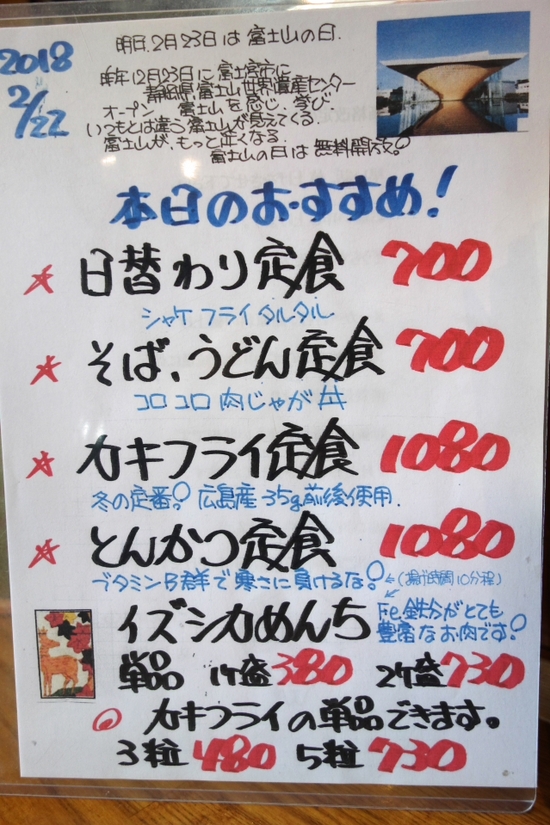 2018
2/22
明日、2月23日は富士山の日。
昨年12月23日に富士宮市に
静岡県富士山世界遺産センター
オープン 富士山を感じ、学び
いつもとは違う富士山が感えてくる
富士山が、もっと近くなる。
富士山の日は無料開放!
本日のおすすめ!
★ 日替わり定食 700
シャケフライタルタル
★ そば、うどん定食 700
コロコロ肉じゃが丼
★ カキフライ定食 1080
冬の定番! 広島産35g前後使用
★ とんかつ定食 1080
ブタミンB群で寒さに負けるな! ←(揚げ時間10分程)
イズシカめんち Fe.鉄分がとても
豊富なお肉です!
単品 1ケ盛380 2ケ盛730
カキフライの単品できます。
3粒480 5粒730